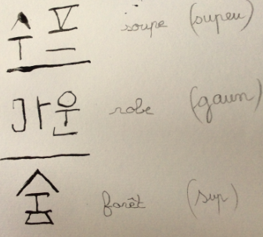 수프 soupe (supeu)
가운 robe (gaun)
숲 forêt (sup)